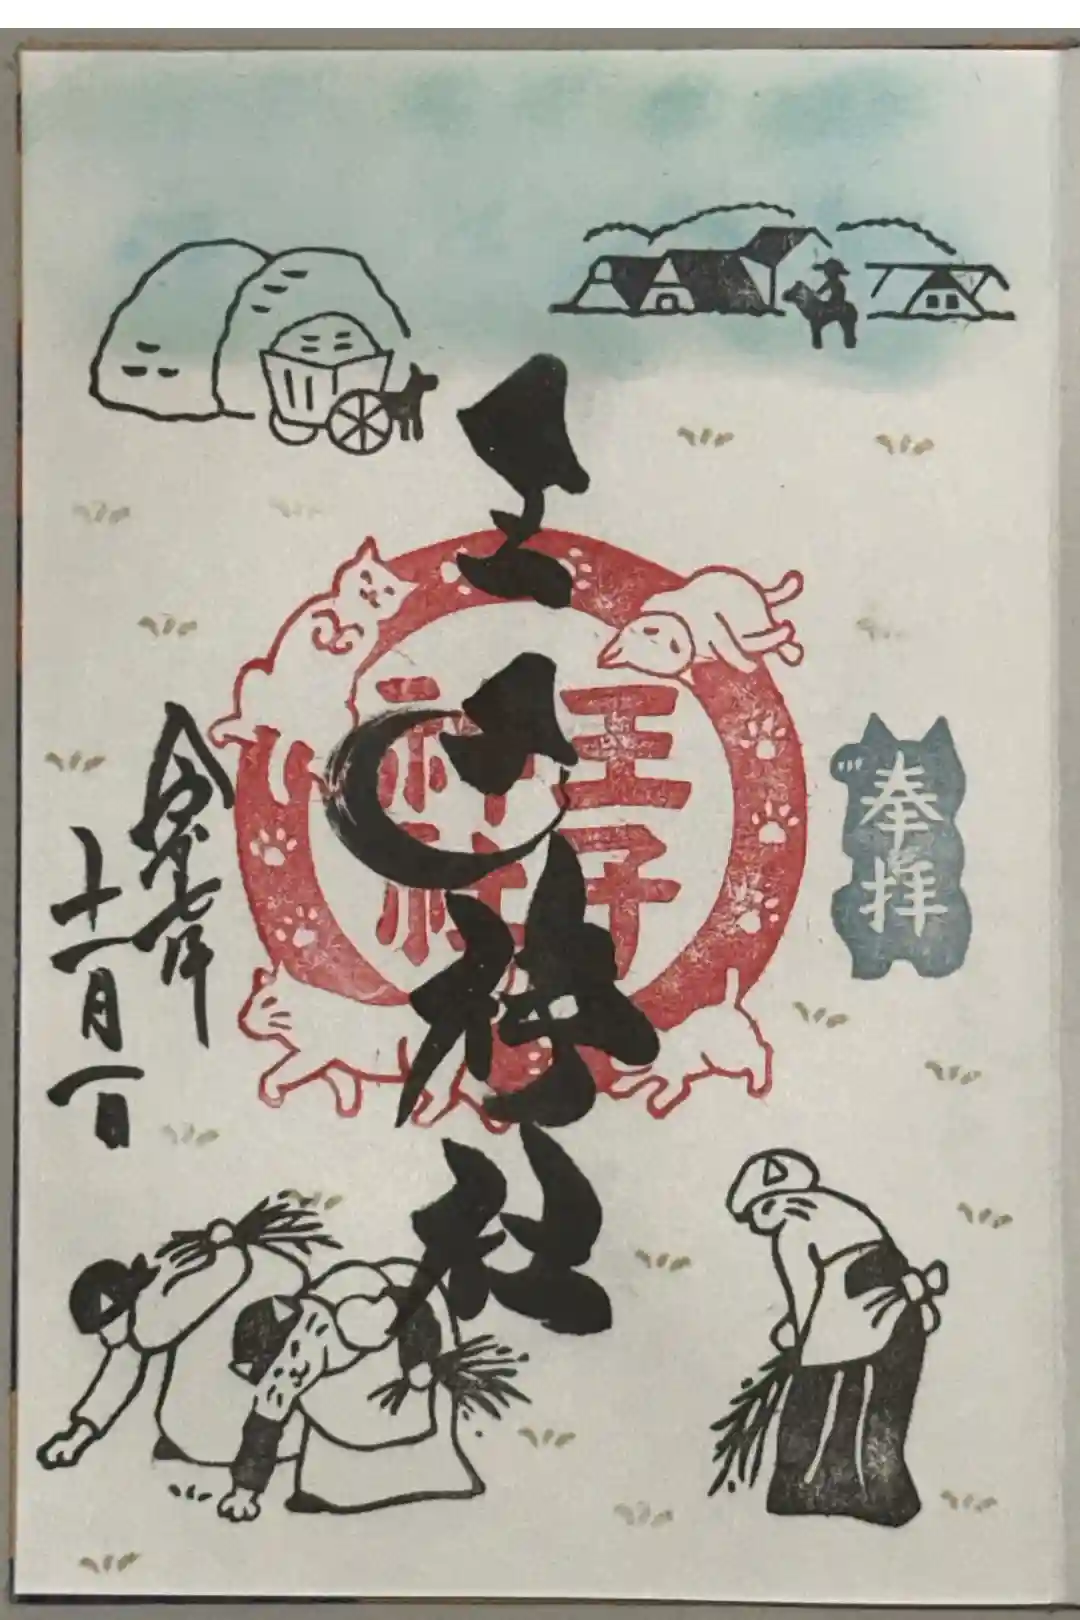 奉拝
王子神社
王子
神社
令和七年
十一月一日